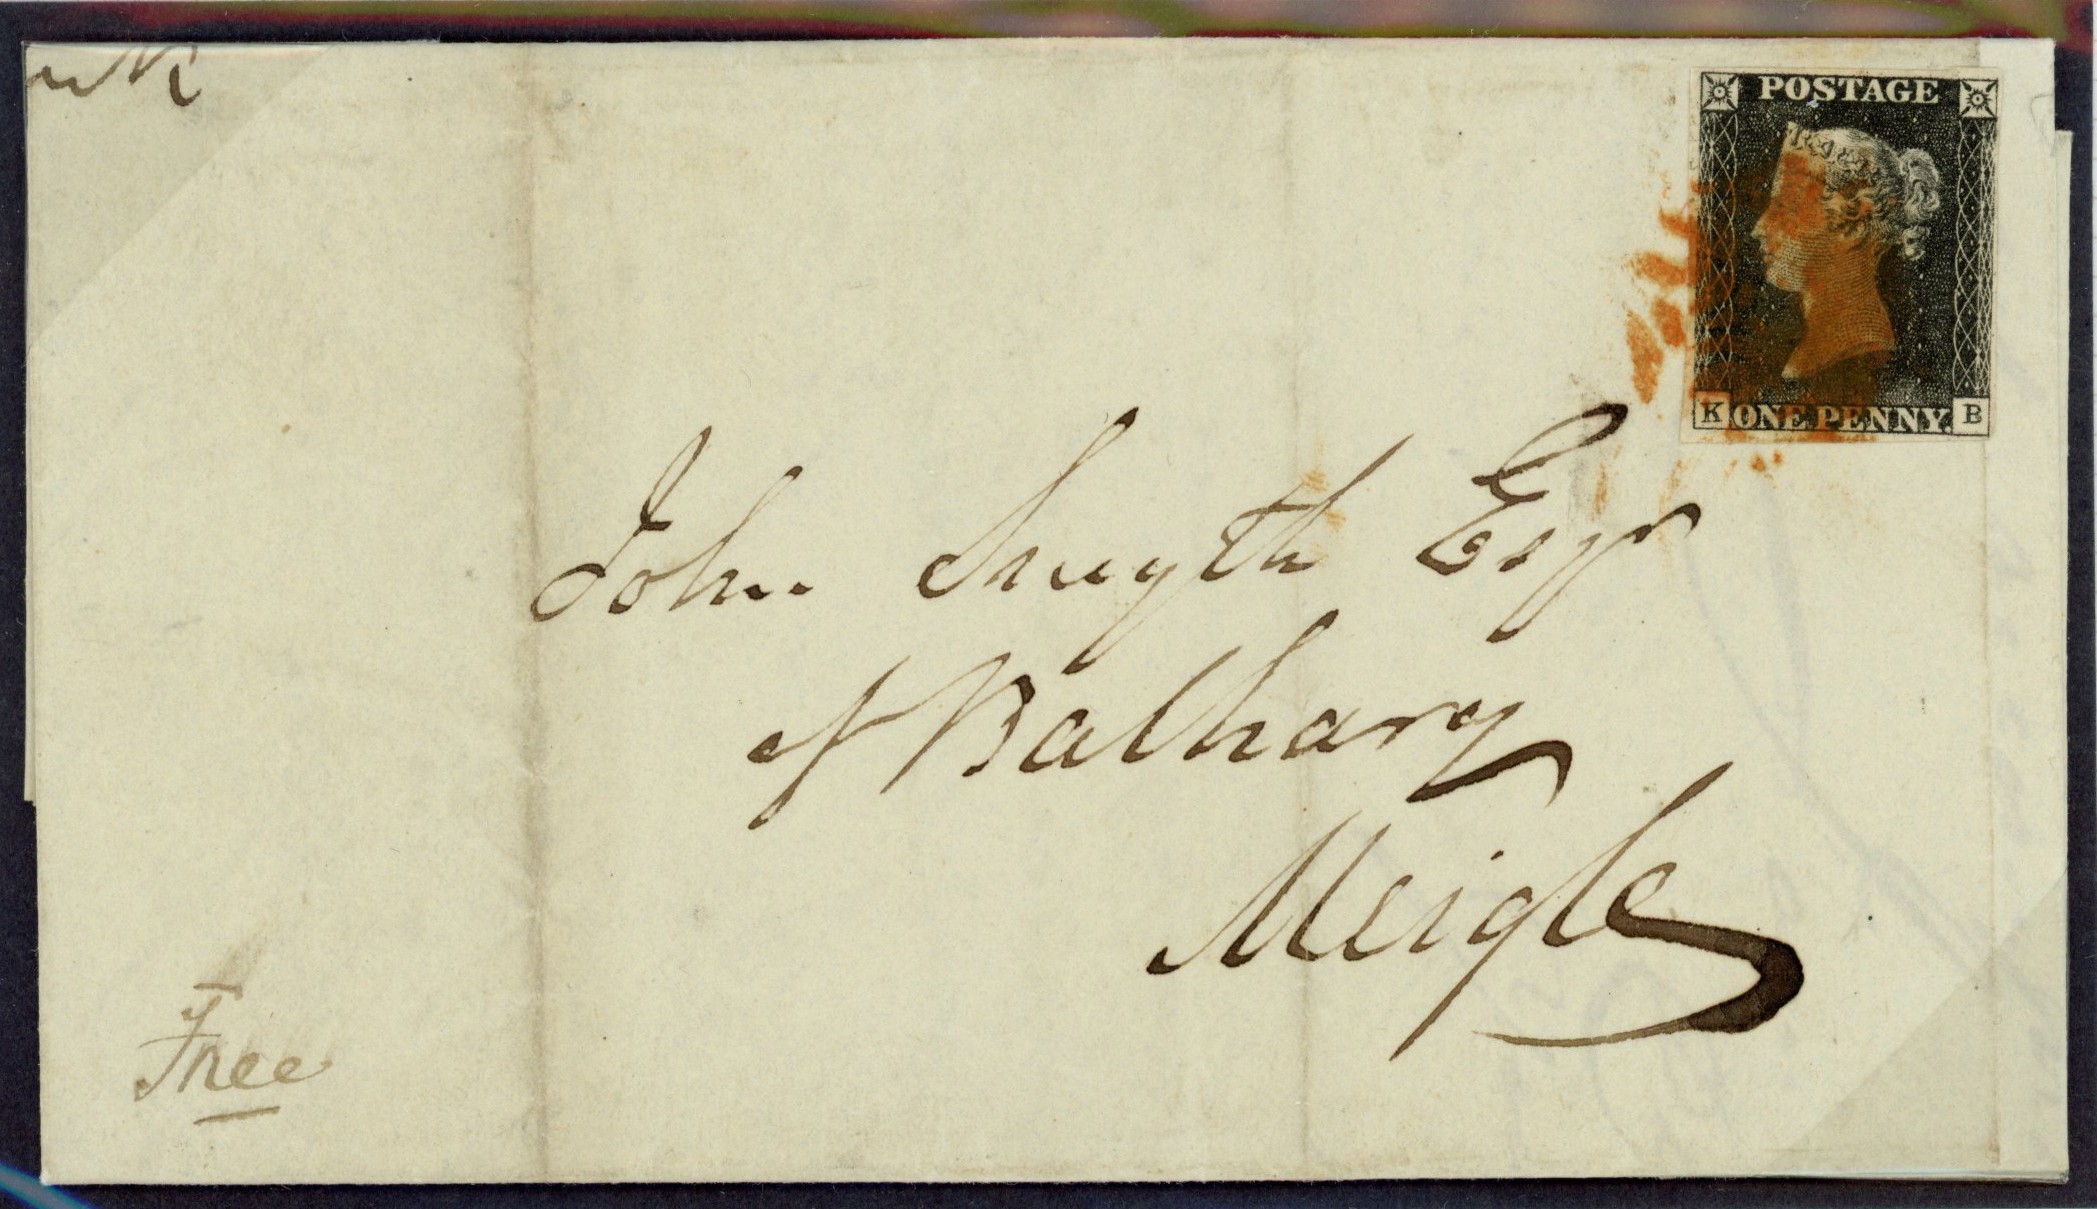 POSTAGE
K ONE PENNY. B
John Smyth Esqr
of Balhary
Meigle
Free